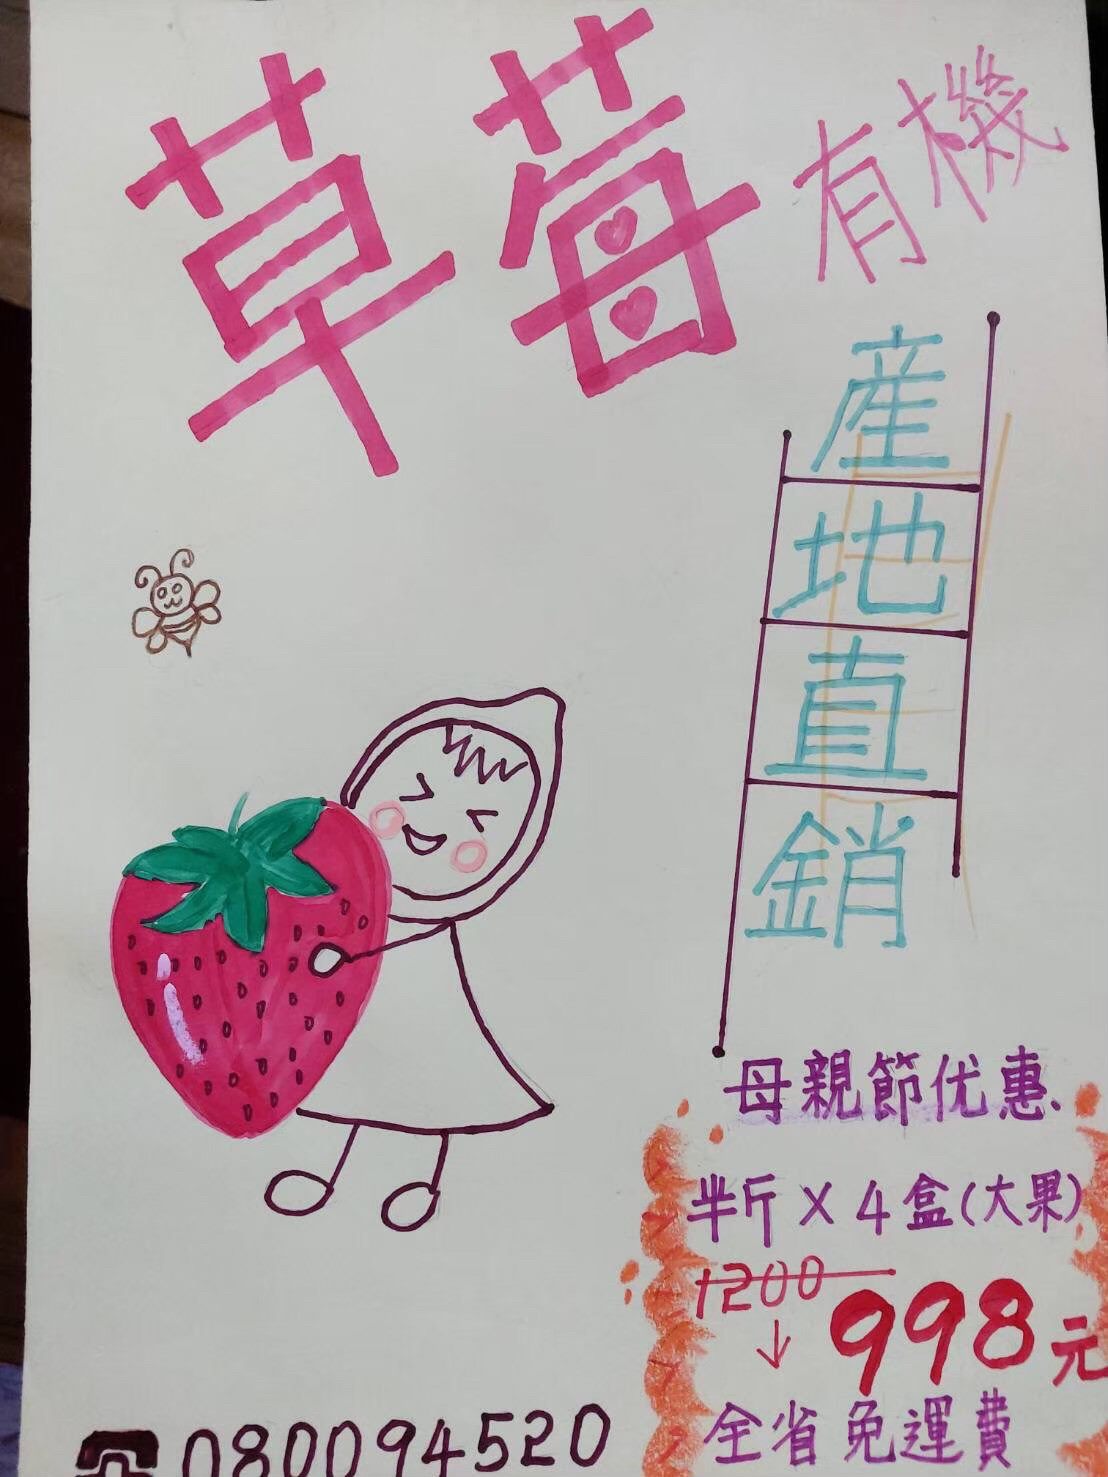 草莓
有機
產地直銷
母親節优惠
半斤 × 4盒(大果)
1200
↓
998元
全省免運費
☎080094520